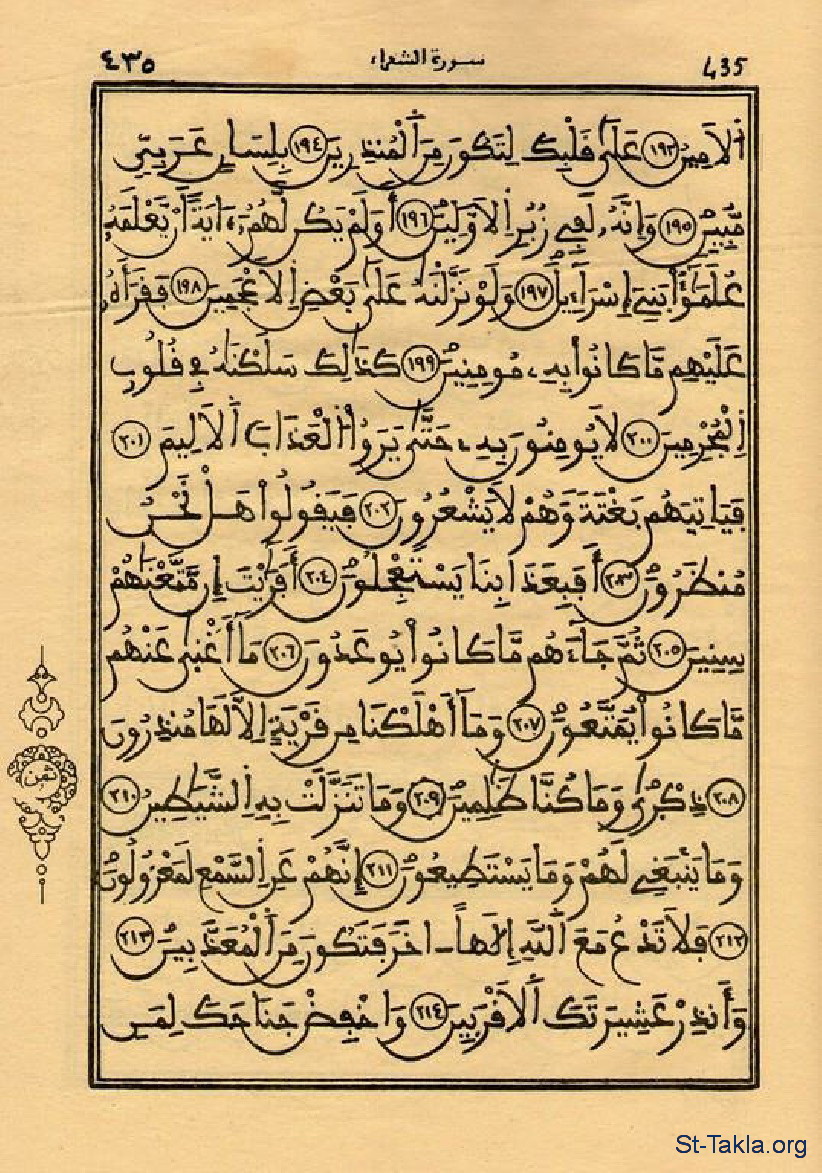 ٤٣٥ سورة الشعراء 435
اُ۬لَامِينُ ١٩٣ عَلَىٰ قَلْبِكَ لِتَكُونَ مِنَ اَ۬لْمُنذِرِينَ ١٩٤ بِلِسَانٍ عَرَبِيّٖ
مُّبِينٖ ١٩٥ وَإِنَّهُۥ لَفِے زُبُرِ اِ۬لَاوَّلِينَ ١٩٦ أَوَلَمْ يَكُن لَّهُمُۥٓ ءَايَةً أَنْ يَّعْلَمَهُۥ
عُلَمَٰٓؤُاْ بَنِےٓ إِسْرَآءِيلَ ١٩٧ وَلَوْ نَزَّلْنَٰهُ عَلَىٰ بَعْضِ اِ۬لَاعْجَمِينَ ١٩٨ فَقَرَأَهُۥ
عَلَيْهِم مَّا كَانُواْ بِهِۦ مُومِنِينَ ١٩٩ كَذَٰلِكَ سَلَكْنَٰهُ فِے قُلُوبِ
اِ۬لْمُجْرِمِينَ ٢٠٠ لَا يُومِنُونَ بِهِۦ حَتَّىٰ يَرَوُاْ اُ۬لْعَذَابَ اَ۬لَالِيمَ ٢٠١
فَيَاتِيَهُم بَغْتَةٗ وَهُمْ لَا يَشْعُرُونَ ٢٠٢ فَيَقُولُواْ هَلْ نَحْنُ
مُنظَرُونَ ٢٠٣ أَفَبِعَذَابِنَا يَسْتَعْجِلُونَ ٢٠٤ أَفَرَٰيْتَ إِن مَّتَّعْنَٰهُمْ
سِنِينَ ٢٠٥ ثُمَّ جَآءَهُم مَّا كَانُواْ يُوعَدُونَ ٢٠٦ مَآ أَغْنَىٰ عَنْهُم
مَّا كَانُواْ يُمَتَّعُونَ ٢٠٧ وَمَآ أَهْلَكْنَا مِن قَرْيَةٍ اِلَّا لَهَا مُنذِرُونَ
٢٠٨ ذِكْرَىٰ وَمَا كُنَّا ظَٰلِمِينَ ٢٠٩ وَمَا تَنَزَّلَتْ بِهِ اِ۬لشَّيَٰطِينُ ٢١٠
وَمَا يَنۢبَغِے لَهُمْ وَمَا يَسْتَطِيعُونَ ٢١١ إِنَّهُمْ عَنِ اِ۬لسَّمْعِ لَمَعْزُولُونَ
٢١٢ فَلَا تَدْعُ مَعَ اَ۬للَّهِ إِلَٰهاً اٰخَرَ فَتَكُونَ مِنَ اَ۬لْمُعَذَّبِينَ ٢١٣
وَأَنذِرْ عَشِيرَتَكَ اَ۬لَاقْرَبِينَ ٢١٤ وَاخْفِضْ جَنَاحَكَ لِمَنِ
ثمن
St-Takla.org